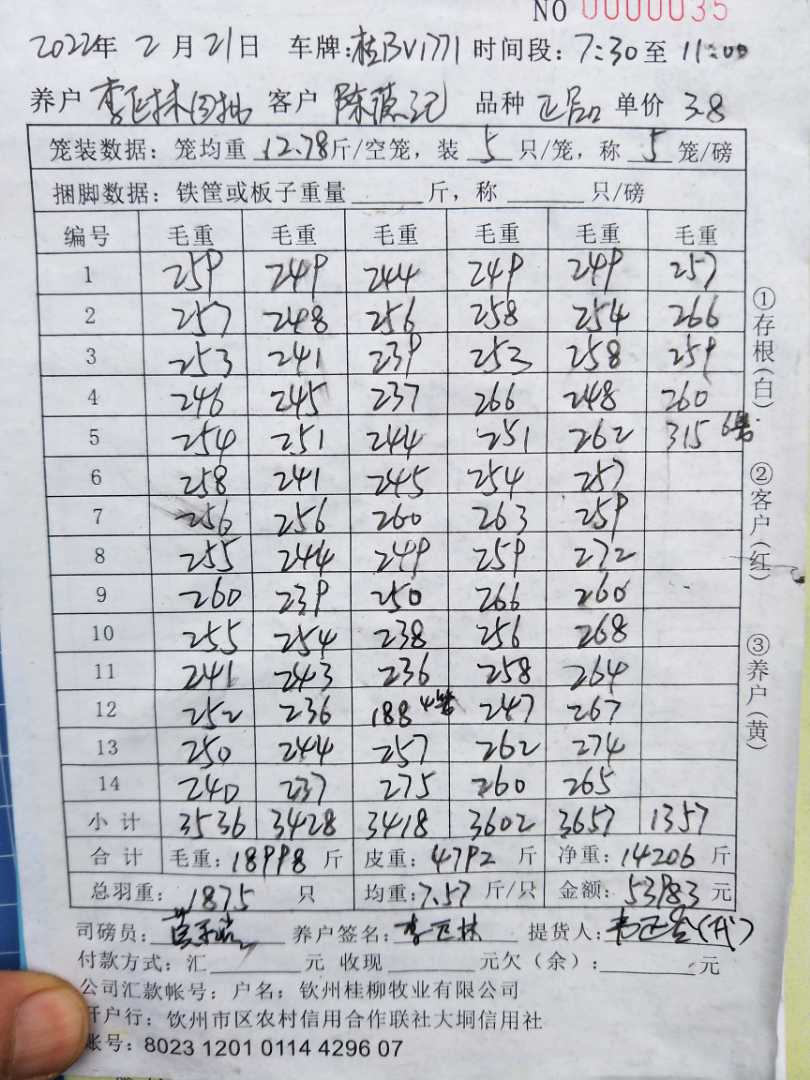 NO 0000035
2022年 2 月 21日 车牌:桂BV1771 时间段: 7:30 至 11:00
养户 李正林 客户 陈德记 品种 正品 单价 3.8
笼装数据: 笼均重 12.78斤/空笼, 装 5 只/笼, 称 5 笼/磅
捆脚数据: 铁筐或板子重量 斤, 称 只/磅
编号 毛重 毛重 毛重 毛重 毛重 毛重
1 259 249 244 249 249 257
2 257 248 256 258 254 266
3 253 241 239 253 258 259
4 246 245 237 266 248 260
5 254 251 244 251 262 315 6笼
6 258 241 245 254 257
7 256 256 260 263 259
8 255 244 249 259 272
9 260 239 250 266 260
10 255 254 238 256 268
11 241 243 236 258 264
12 252 236 188 4笼 247 267
13 250 244 257 262 274
14 240 237 275 260 265
小计 3536 3428 3418 3602 3657 1357
合计 毛重: 18998 斤 皮重: 4792 斤 净重: 14206 斤
总羽重: 1875 只 均重: 7.57 斤/只 金额: 53983 元
司磅员: 养户签名: 李正林 提货人: (代)
付款方式: 汇 元 收现 元欠(余): 元
公司汇款帐号: 户名: 钦州桂柳牧业有限公司
开户行: 钦州市区农村信用合作联社大垌信用社
账号: 8023 1201 0114 4296 07
①存根(白)
②客户(红)
③养户(黄)